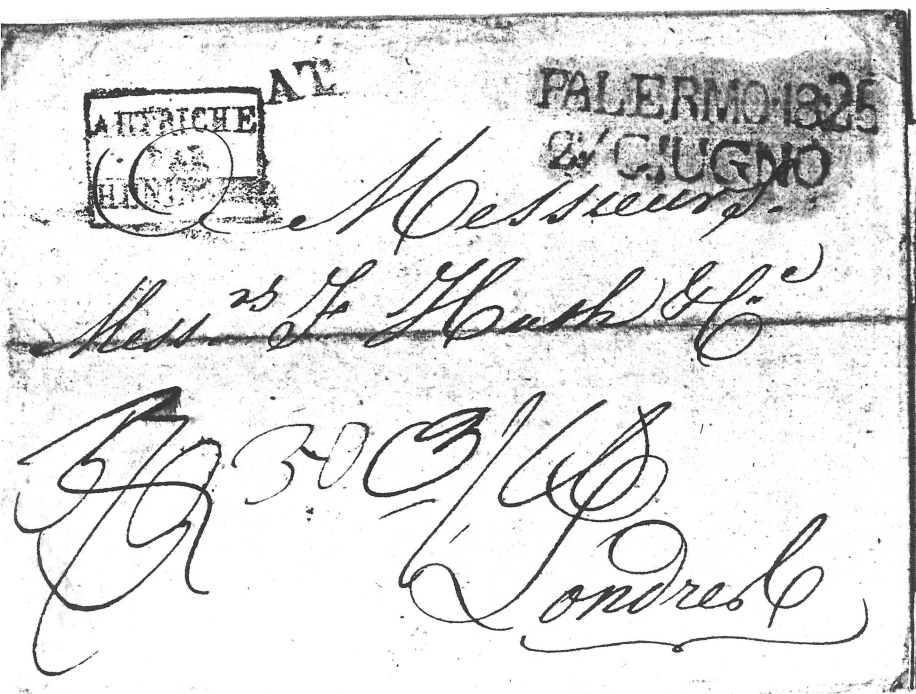 AT
AUTRICHE
PAR
PALERMO·1825
2/ GIUGNO
Messieurs.
Mess.rs F Huth & C.e
30 3/
Londres